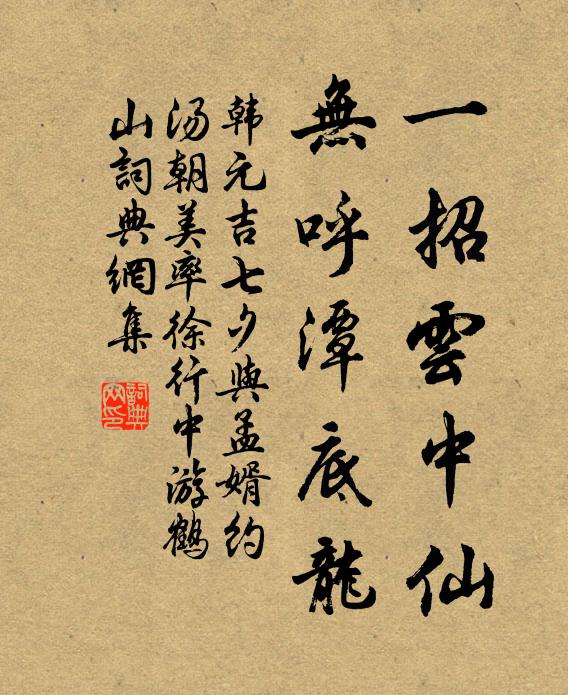 一招雲中仙
無呼潭底龍
韩元吉七夕與孟婿约
汤朝美率徐行中游鶴
山詞典網集
詞典
网印